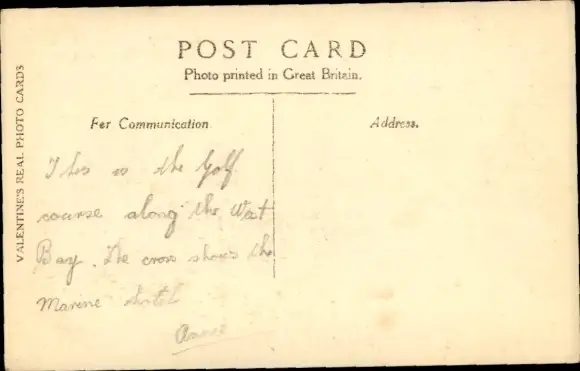 POST CARD
Photo printed in Great Britain.
For Communication
Address.
VALENTINE'S REAL PHOTO CARDS
This is the Golf
course along the West
Bay. The cross shows the
Marine Hotel